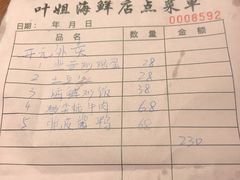 叶姐海鲜店点菜单
0008592
日期： 年 月 日
品名 数量 金额
开元外卖
1 28
2 土豆丝 28
3 海鲜炒饭 38
4 牛肉 68
5 鸭 68
230